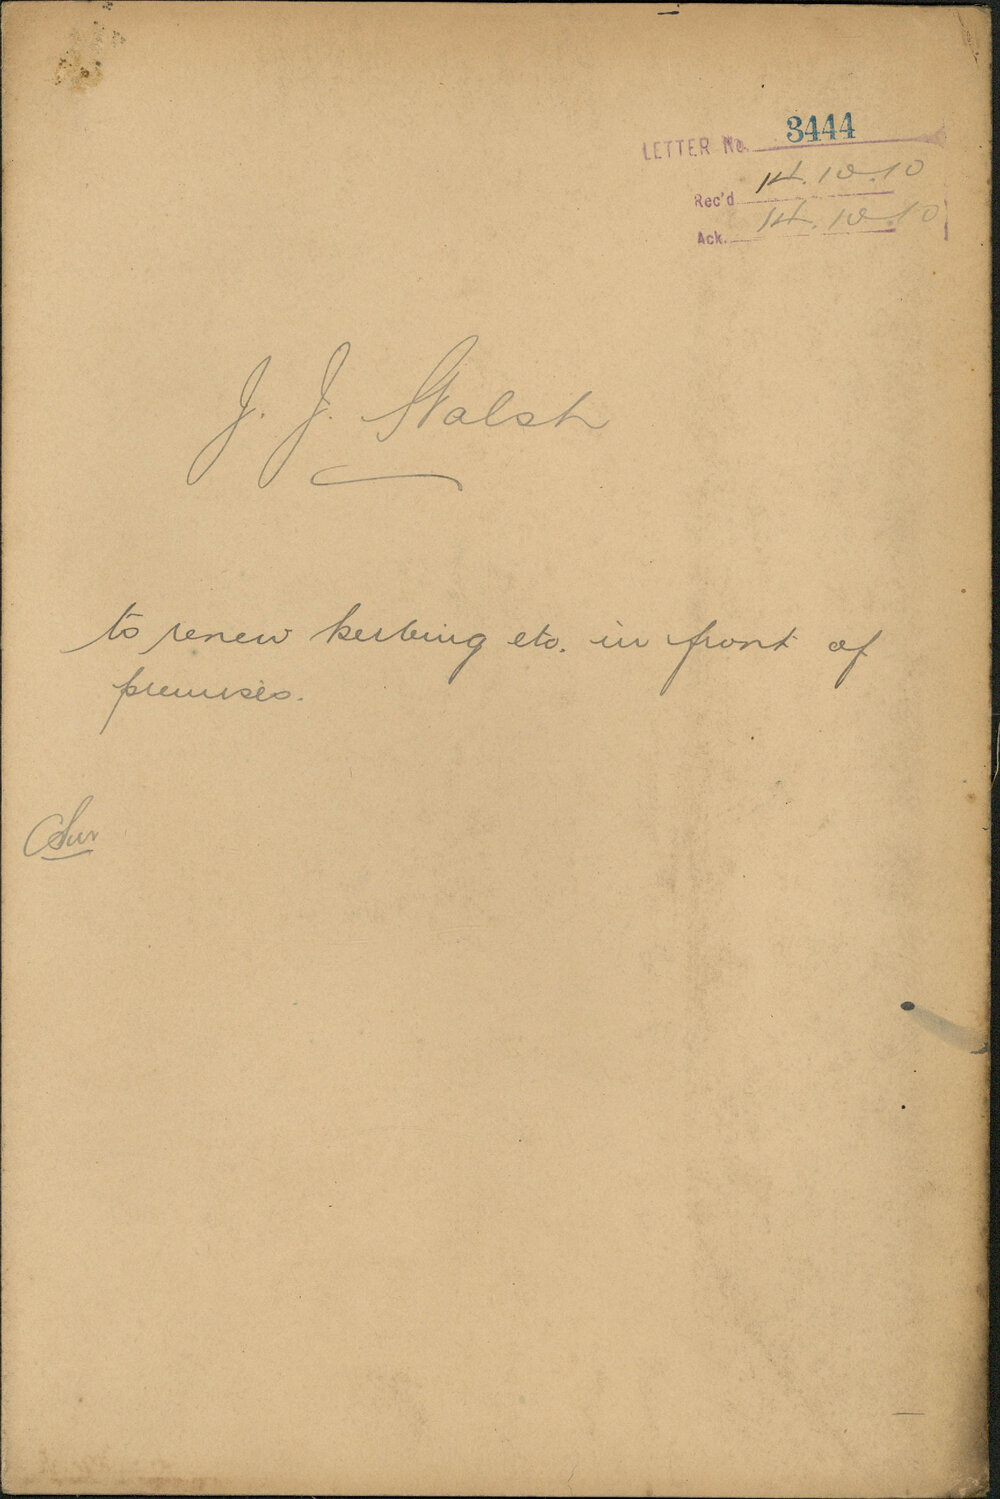 LETTER No. 3444
Rec'd 14.10.10
Ack. 14.10.10
J. J. Walsh
to renew kerbing etc. in front of
premises.
Sur